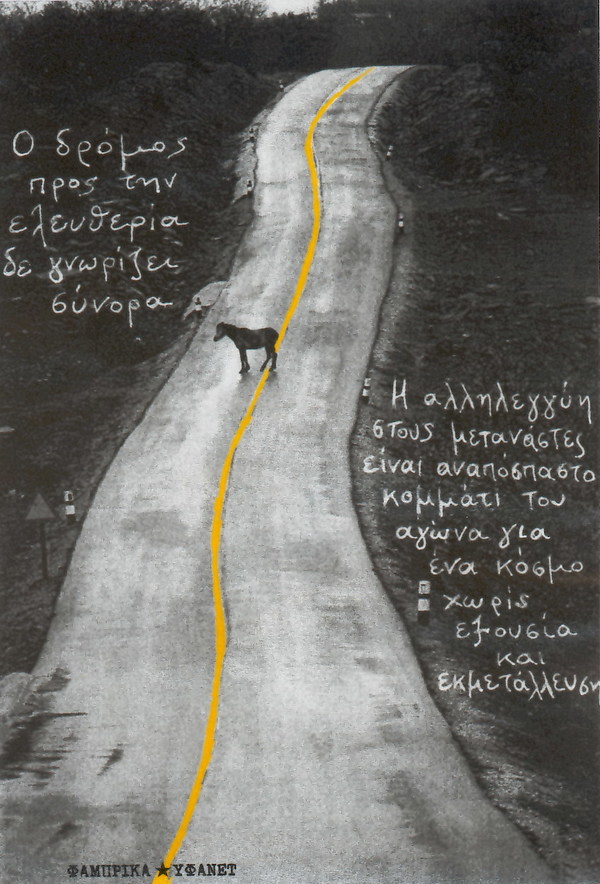 Ο δρόμος
προς την
ελευθερία
δε γνωρίζει
σύνορα
Η αλληλεγγύη
στους μετανάστες
είναι αναπόσπαστο
κομμάτι του
αγώνα για
ένα κόσμο
χωρίς
εξουσία
και
εκμετάλλευση
ΦΑΜΠΡΙΚΑ★ΥΦΑΝΕΤ